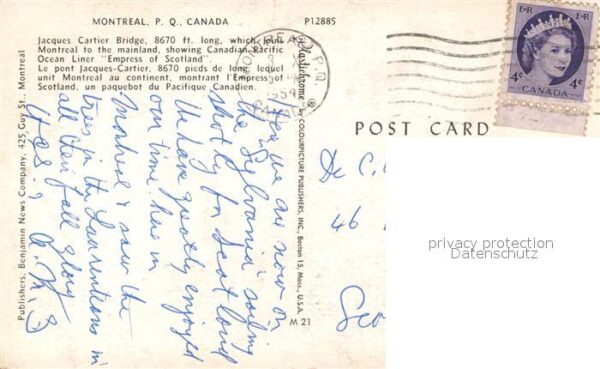 MONTREAL, P. Q., CANADA
P12885
Jacques Cartier Bridge, 8670 ft. long, which joins
Montreal to the mainland, showing Canadian Pacific
Ocean Liner "Empress of Scotland".
Le pont Jacques-Cartier, 8670 pieds de long, lequel
unit Montreal au continent, montrant l'Empress of
Scotland, un paquebot du Pacifique Canadien.
Publishers, Benjamin News Company, 425 Guy St. Montreal
Plastichrome ® by COLOURPICTURE PUBLISHERS, INC., Boston 15, Mass., U.S.A.
M 21
P.Q.
E R
E R
4c
4c
CANADA
POST CARD
Here we are now on
the Sylvania sailing
shortly for Scotland
We have greatly enjoyed
our time here in
Montreal & saw the
trees in the Laurentians in
all their fall glory
Dr C.
46
privacy protection
Datenschutz